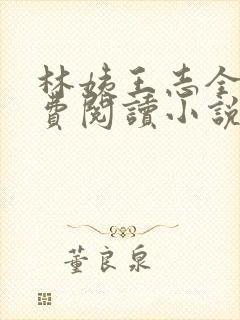 林姨王志全
費閱讀小說
董良泉